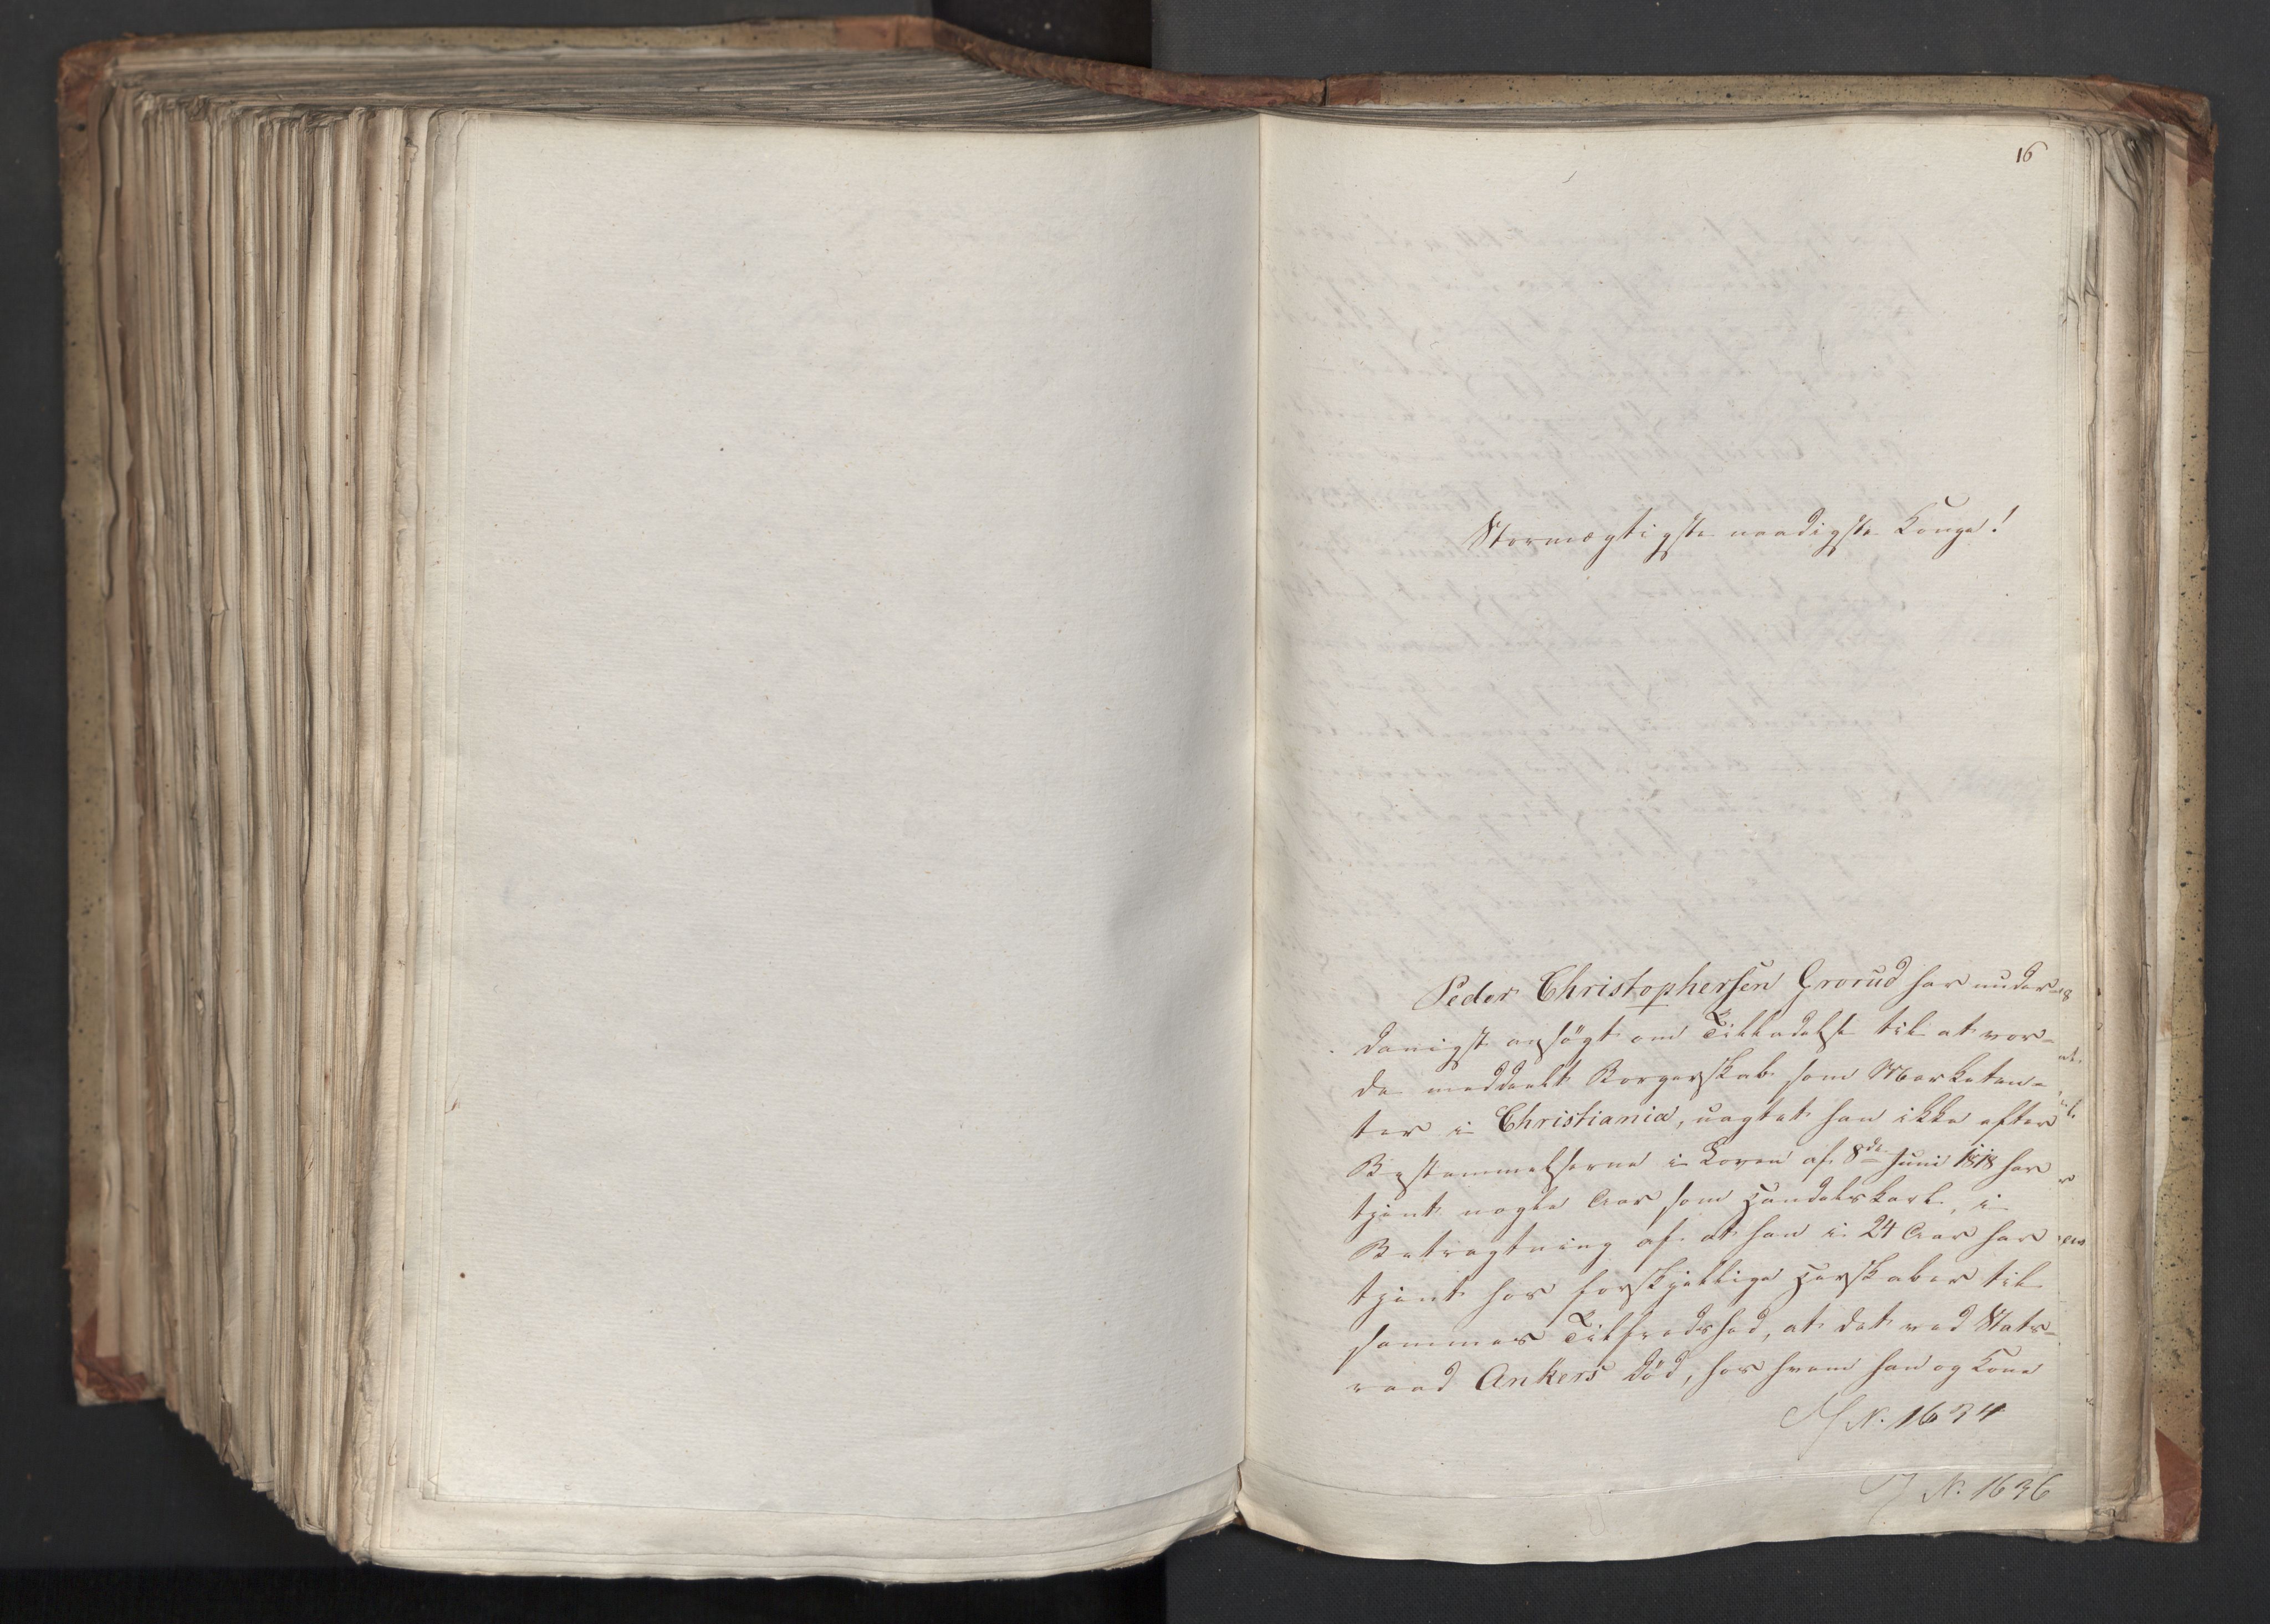 16
Stormægtigste naadigste Konge!
Peder Christophersen Grorud har under-
danigst ansøgt om Tilladelse til at vor-
de meddeelt Borgerskab som Marketen-
ter i Christiania, uagtet han ikke efter
Bestemmelserne i Loven af 8de Juni 1818 har
tjent nogle Aar som Handelskarl, i
Betragtning af at han i 24 Aar har
tjent hos forskjellige Herskaber til
sammes Tilfredshed, at det ved Stats-
raad Ankers Död, hos hvem han og Kone
N. 1634
J N. 1636